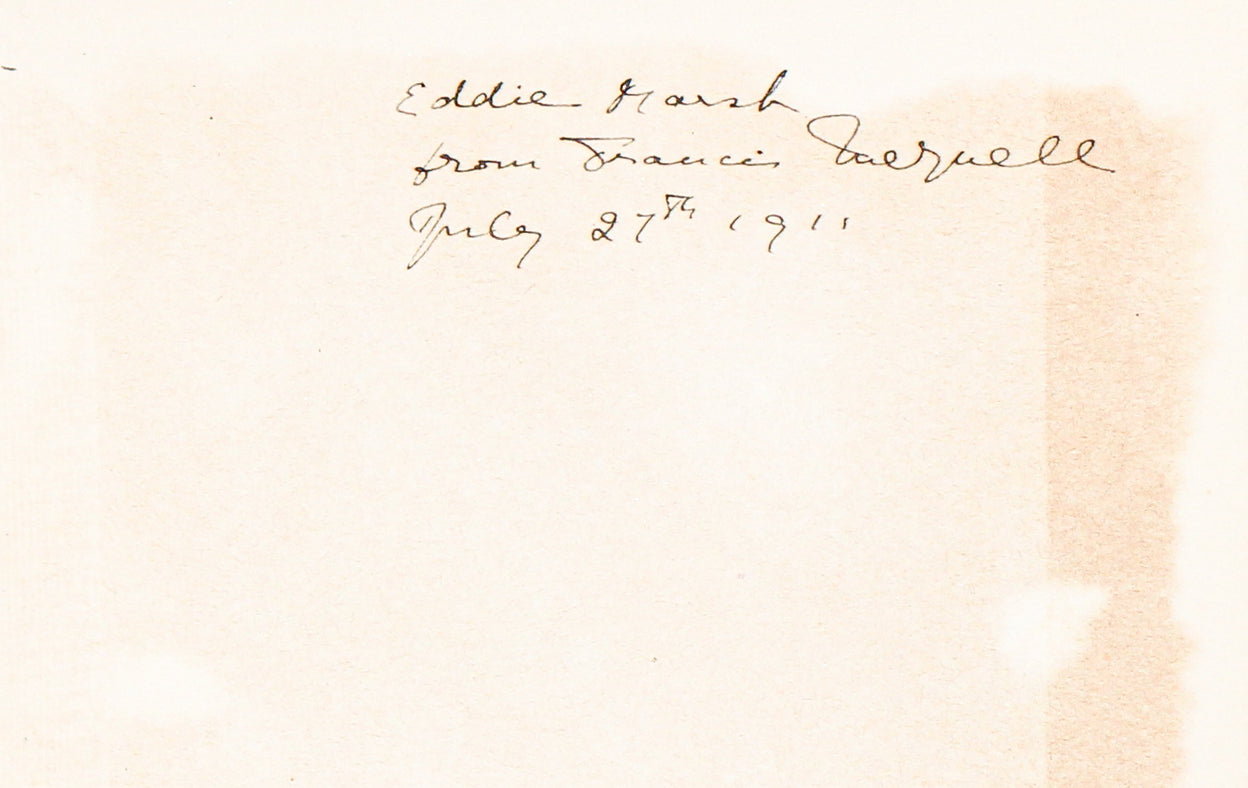 Eddie Marsh
from Francis Meynell
July 27th 1911